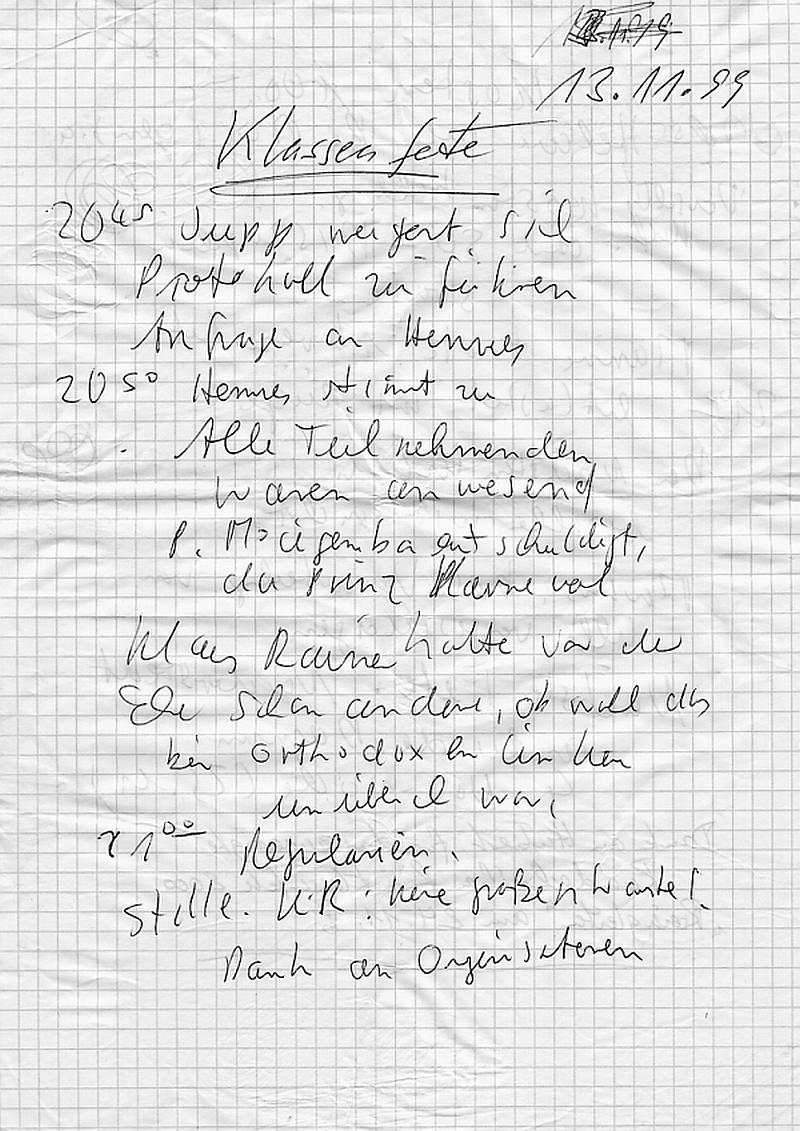 13.11.99
Klassenfete
20⁴⁵ Jupp weigert sich
Protokoll zu führen
Anfrage an Hennes
20⁵⁰ Hennes stimmt zu
. Alle Teilnehmenden
waren anwesend
P. Mocigemba entschuldigt,
da Prinz Karneval
Klaus Rainer hatte vor der
Ehe schon andere, obwohl das
bei orthodoxen Linken
unüblich war,
21⁰⁰ Regularien.
Stille. K.R: keine großen Worte!
Dank an Organisatoren